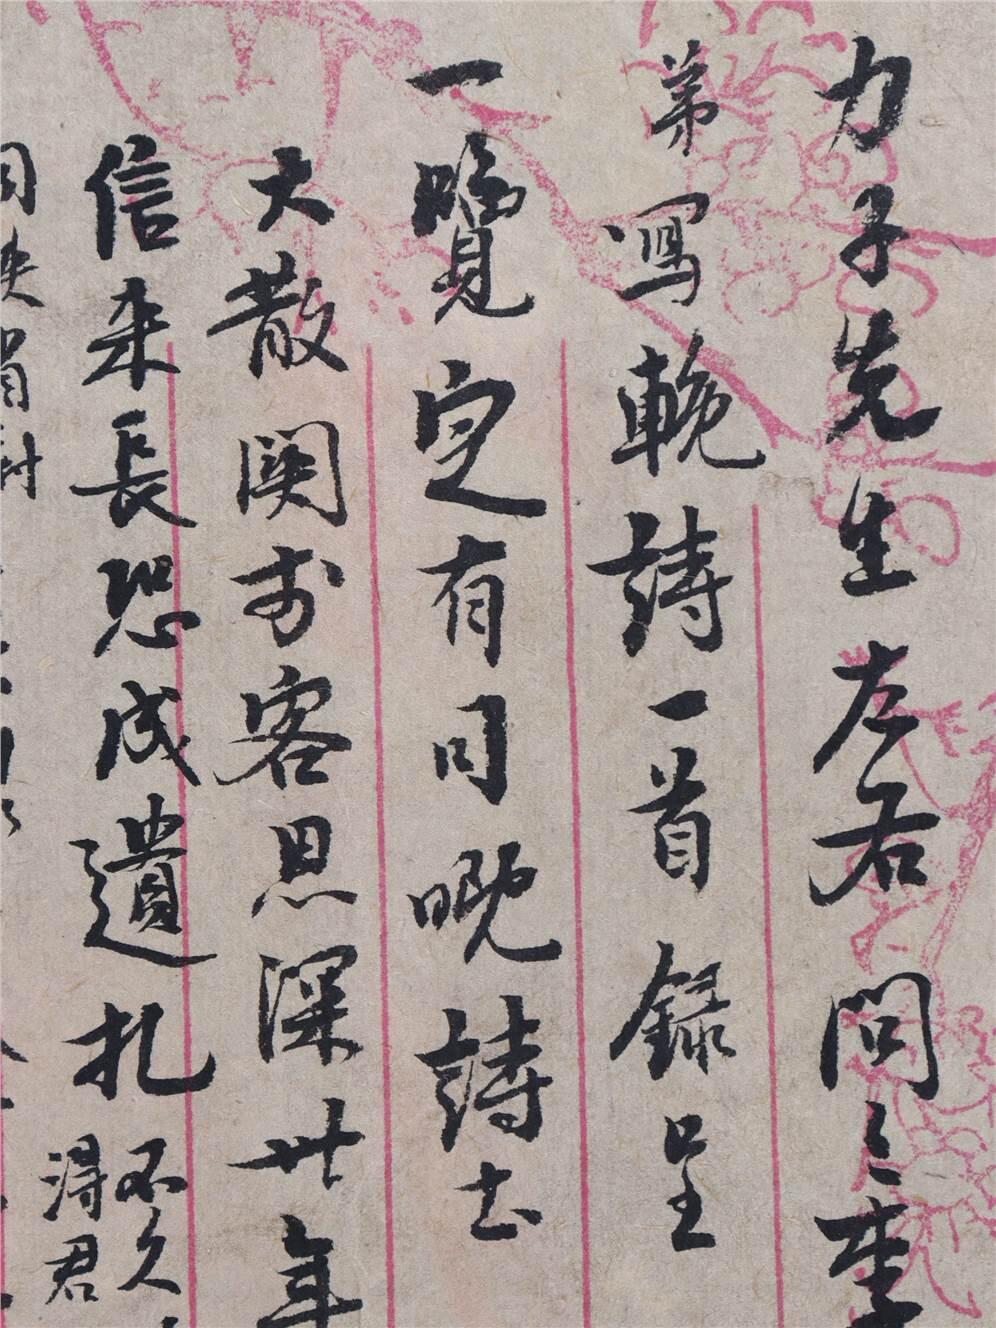 力子先生左右問
弟寫輓詩一首錄呈
一覽定有同晚詩
大散関 客思深廿年
信来長恐成遺札
不久
得君